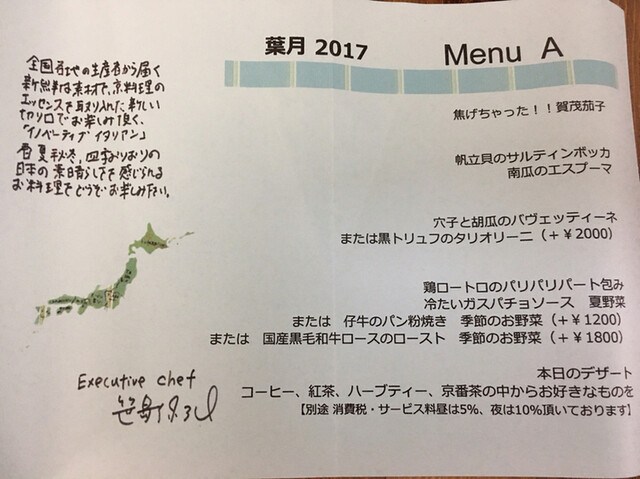 葉月 2017
Menu A
全国各地の生産者から届く
新鮮な素材で、京料理の
エッセンスを取り入れた新しい
切り口でお楽しみ頂く、
「イノベーティブ イタリアン」
春夏秋冬、四季おりおりの
日本の素晴しさを感じられる
お料理をどうぞお楽しみ下さい。
焦げちゃった！！賀茂茄子
帆立貝のサルティンボッカ
南瓜のエスプーマ
穴子と胡瓜のパヴェッティーネ
または黒トリュフのタリオリーニ（＋￥2000）
鶏ロートロのパリパリパート包み
冷たいガスパチョソース　夏野菜
または　仔牛のパン粉焼き　季節のお野菜（＋￥1200）
または　国産黒毛和牛ロースのロースト　季節のお野菜（＋￥1800）
本日のデザート
コーヒー、紅茶、ハーブティー、京番茶の中からお好きなものを
【別途 消費税・サービス料昼は5%、夜は10%頂いております】
Executive chef